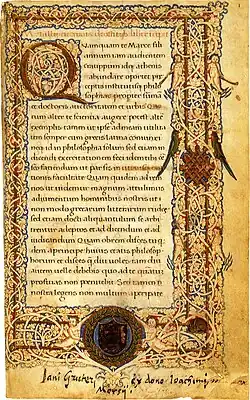 Quamquam te Marce fili
annum iam audientem
cratippum idq; athenis
abundare oportet pre
ceptis institutisq; philo
sophiae propter summā
et doctoris auctoritatem et urbis Quo
rum alter te scientia augere potest alte
ra exemplis tamen ut ipse ad meam utilita
tem semper cum grecis latina coniunxi
neq; id in philosophia solum sed etiam in
dicendi exercitatione feci idem tibi cēseo
faciendum ut par sis in utriusq; oratio
nis facultate Quam quidem ad rem
nos ut uidemur magnum attulimus
adiumentum hominibus nostris ut
non modo grecarum litterarum rudes
sed etiam docti aliquantulum se arbi
trentur adeptos et ad dicendum et ad
iudicandum Quam obrem disces tu qui
dem a principe huius etatis philosoph
horum et disces q̃ diu uoles tam diu
autem uelle debebis quo ad te quātum
proficias non penitebit Sed tamen
nostra legens non multum a peripate
Jani Gruteri ex dono Joachimi